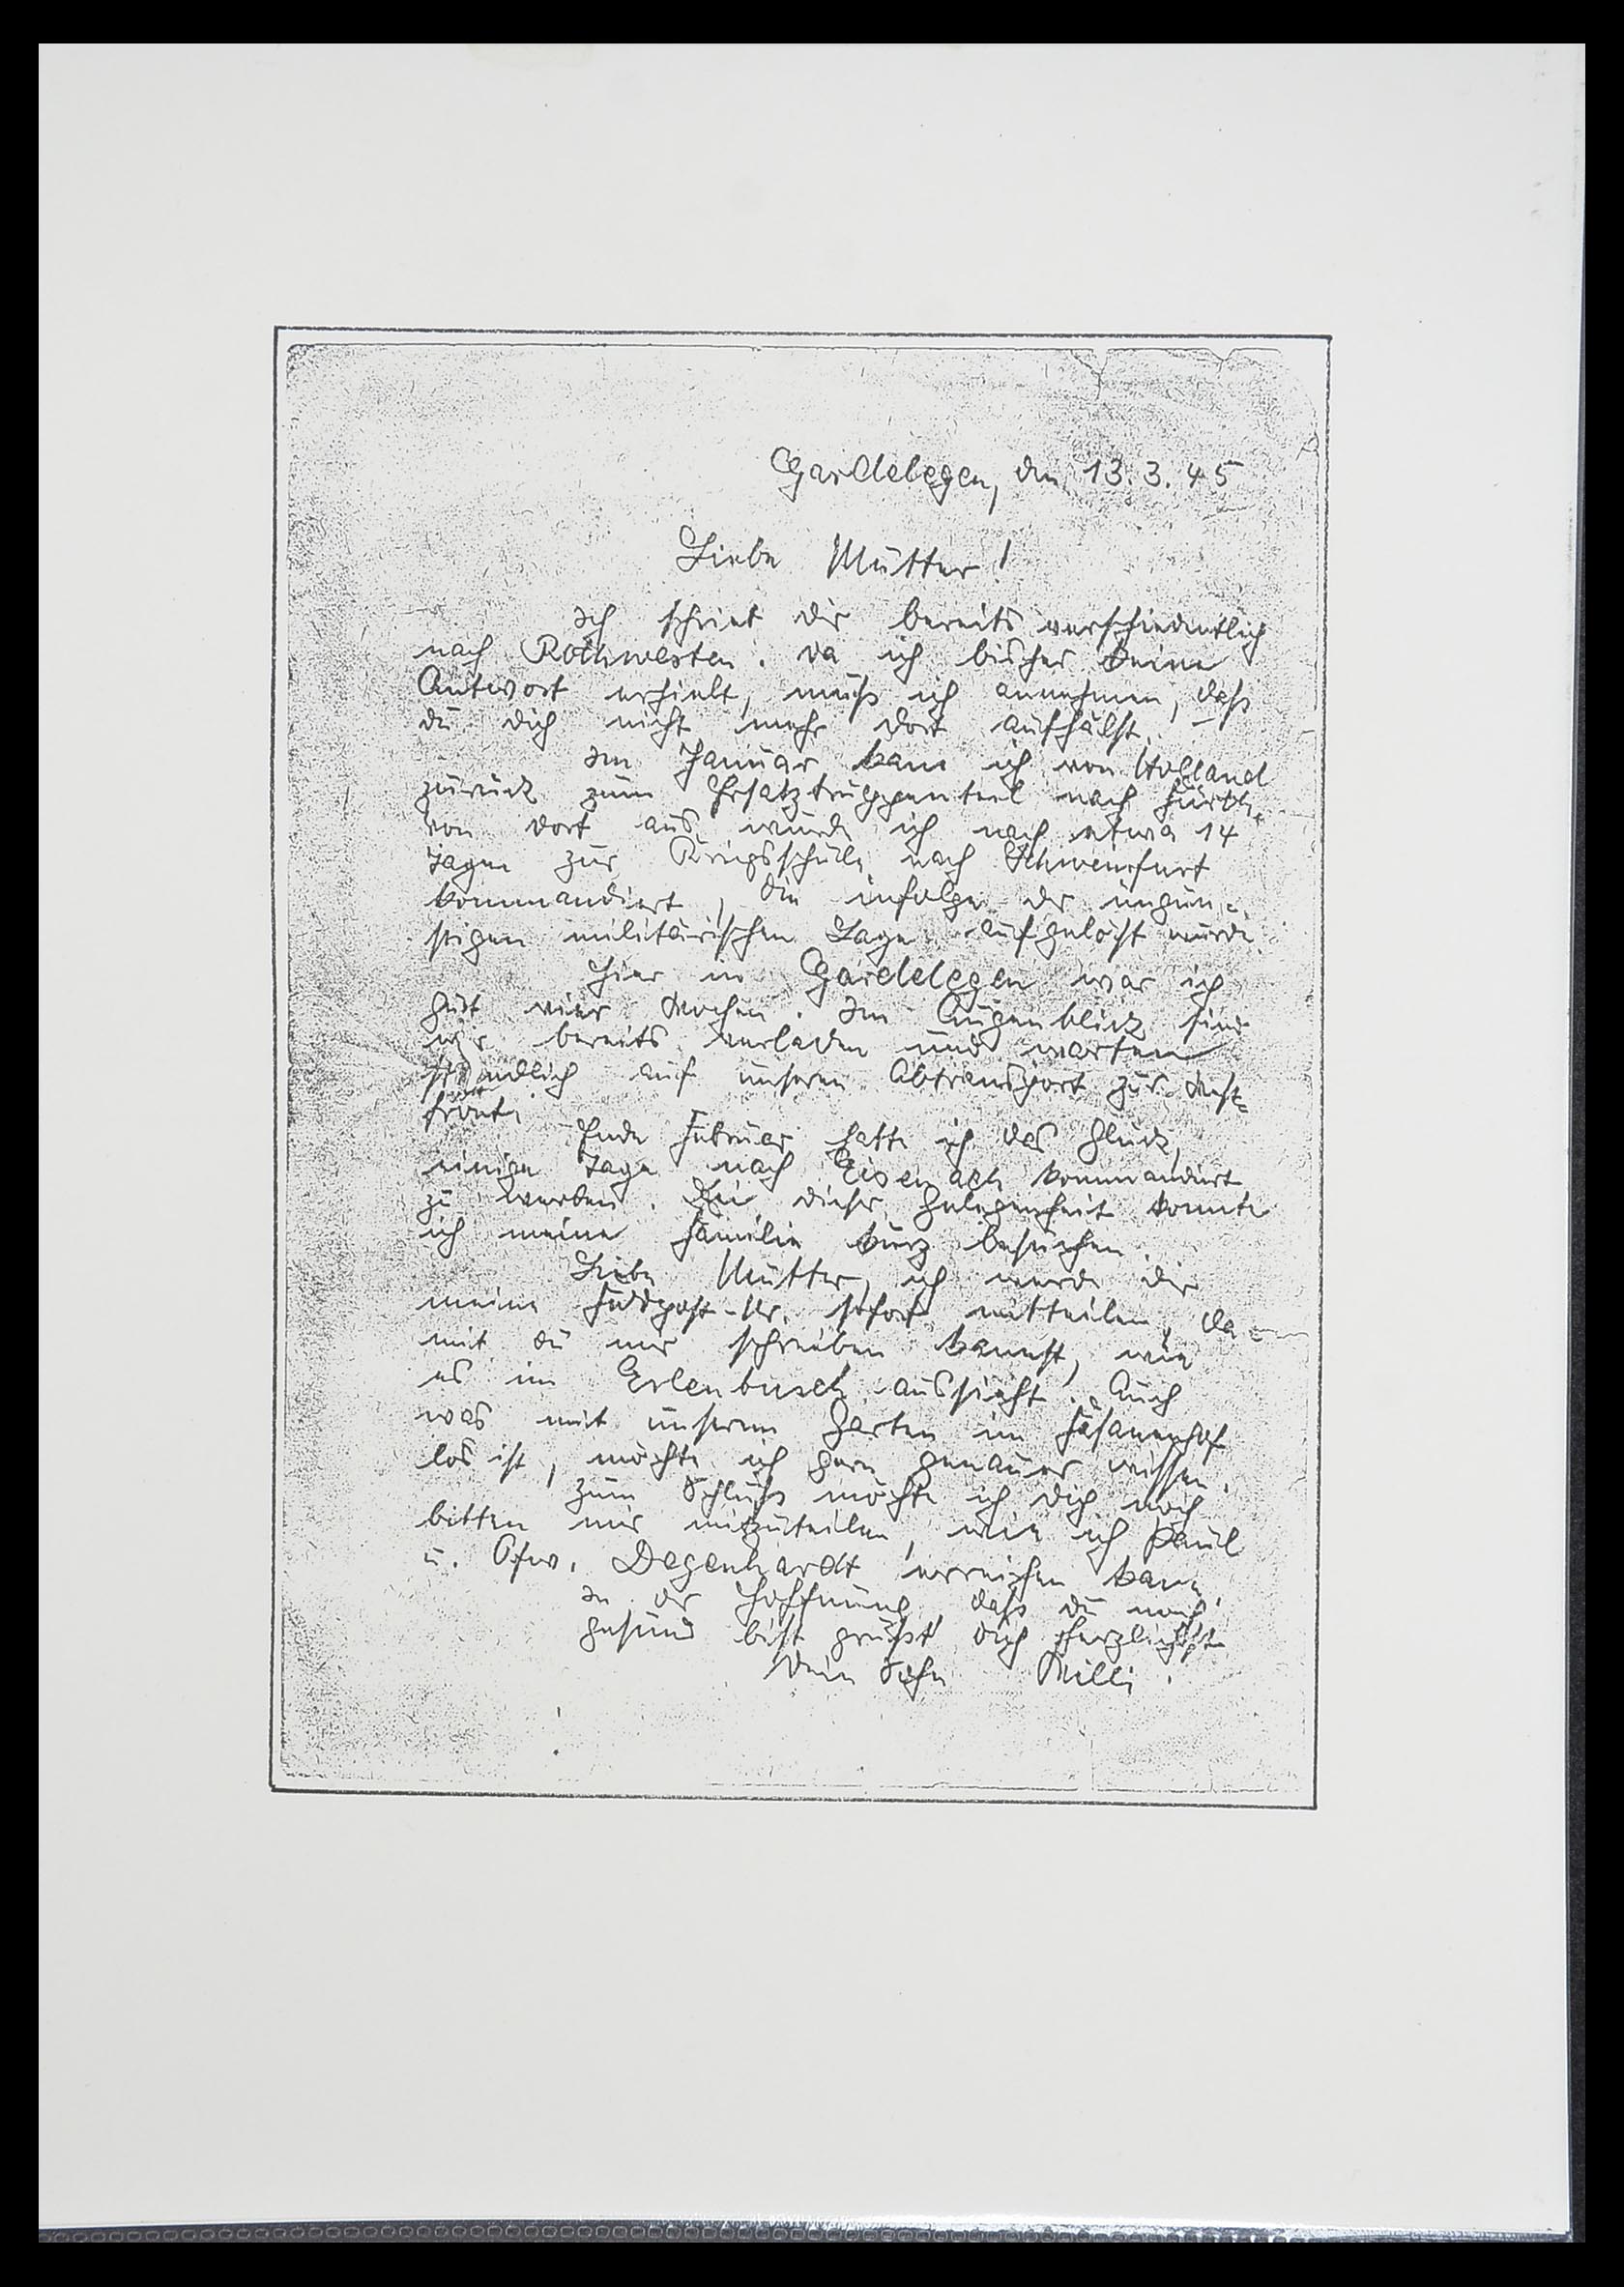 Gardelegen, den 13.3.45
Liebe Mutter!
Ich schrieb dir bereits verschiedentlich
nach Rothwesten. Da ich bisher keine
Antwort erhielt, muß ich annehmen, daß
du dich nicht mehr dort aufhälst. –
Im Januar kam ich von Holland
zurück zum Ersatztruppenteil nach Fürth,
von dort aus wurde ich nach etwa 14
Tagen zur Kriegsschule nach Schweinfurt
kommandiert, die infolge der ungün-
stigen militärischen Lage aufgelöst wurde.
Hier in Gardelegen war ich
gut vier Wochen. Im Augenblick sind
wir bereits verladen und warten
stündlich auf unseren Abtransport zur West-
front.
Ende Februar hatte ich das Glück,
einige Tage nach Eisenach kommandiert
zu werden. Bei dieser Gelegenheit konnte
ich meine Familie kurz besuchen.
Liebe Mutter, ich werde dir
meine Feldpost-Nr. sofort mitteilen, da-
mit du mir schreiben kannst, wie
es im Erlenbusch aussieht. Auch
was mit unserem Garten im Fasanenhof
los ist, möchte ich gern genauer wissen.
Zum Schluß möchte ich dich noch
bitten mir mitzuteilen, wie ich Paul
u. Ofw. Degenhardt erreichen kann.
In der Hoffnung, daß du noch
gesund bist grüßt dich herzlichst
Dein Sohn Willi.